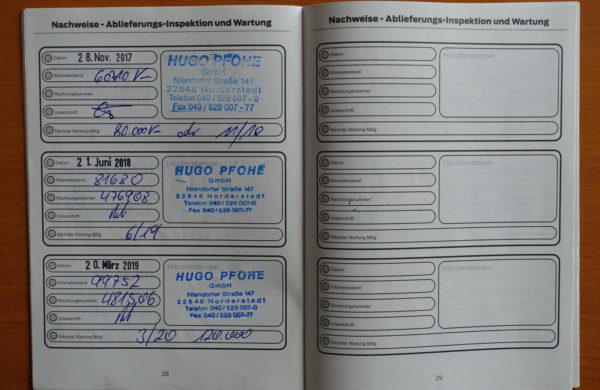 Nachweise - Ablieferungs-Inspektion und Wartung
Datum: 28. Nov. 2017
Kilometerstand:
Rechnungsnummer:
Unterschrift:
Nächste Wartung fällig: 80.000 oder 11/18
HUGO PFOHE
GmbH
Niendorfer Straße 147
22848 Norderstedt
Telefon 040 / 528 007 - 0
Fax 040 / 528 007 - 77
Datum: 21. Juni 2018
Kilometerstand: 81680
Rechnungsnummer: 476908
Unterschrift:
Nächste Wartung fällig: 6/19
Händlerstempel
HUGO PFOHE
GmbH
Niendorfer Straße 147
22848 Norderstedt
Telefon 040 / 528 007-0
Fax 040 / 528 007-77
Datum: 20. März 2019
Kilometerstand: 99752
Rechnungsnummer: 481506
Unterschrift:
Nächste Wartung fällig: 3/20 120.000
Händlerstempel
HUGO PFOHE
GmbH
Niendorfer Straße 147
22848 Norderstedt
Telefon 040 / 528 007-0
Fax 040 / 528 007-77
28
Nachweise - Ablieferungs-Inspektion und Wartung
Datum:
Kilometerstand:
Rechnungsnummer:
Unterschrift:
Nächste Wartung fällig:
Händlerstempel
Datum:
Kilometerstand:
Rechnungsnummer:
Unterschrift:
Nächste Wartung fällig:
Händlerstempel
Datum:
Kilometerstand:
Rechnungsnummer:
Unterschrift:
Nächste Wartung fällig:
Händlerstempel
29